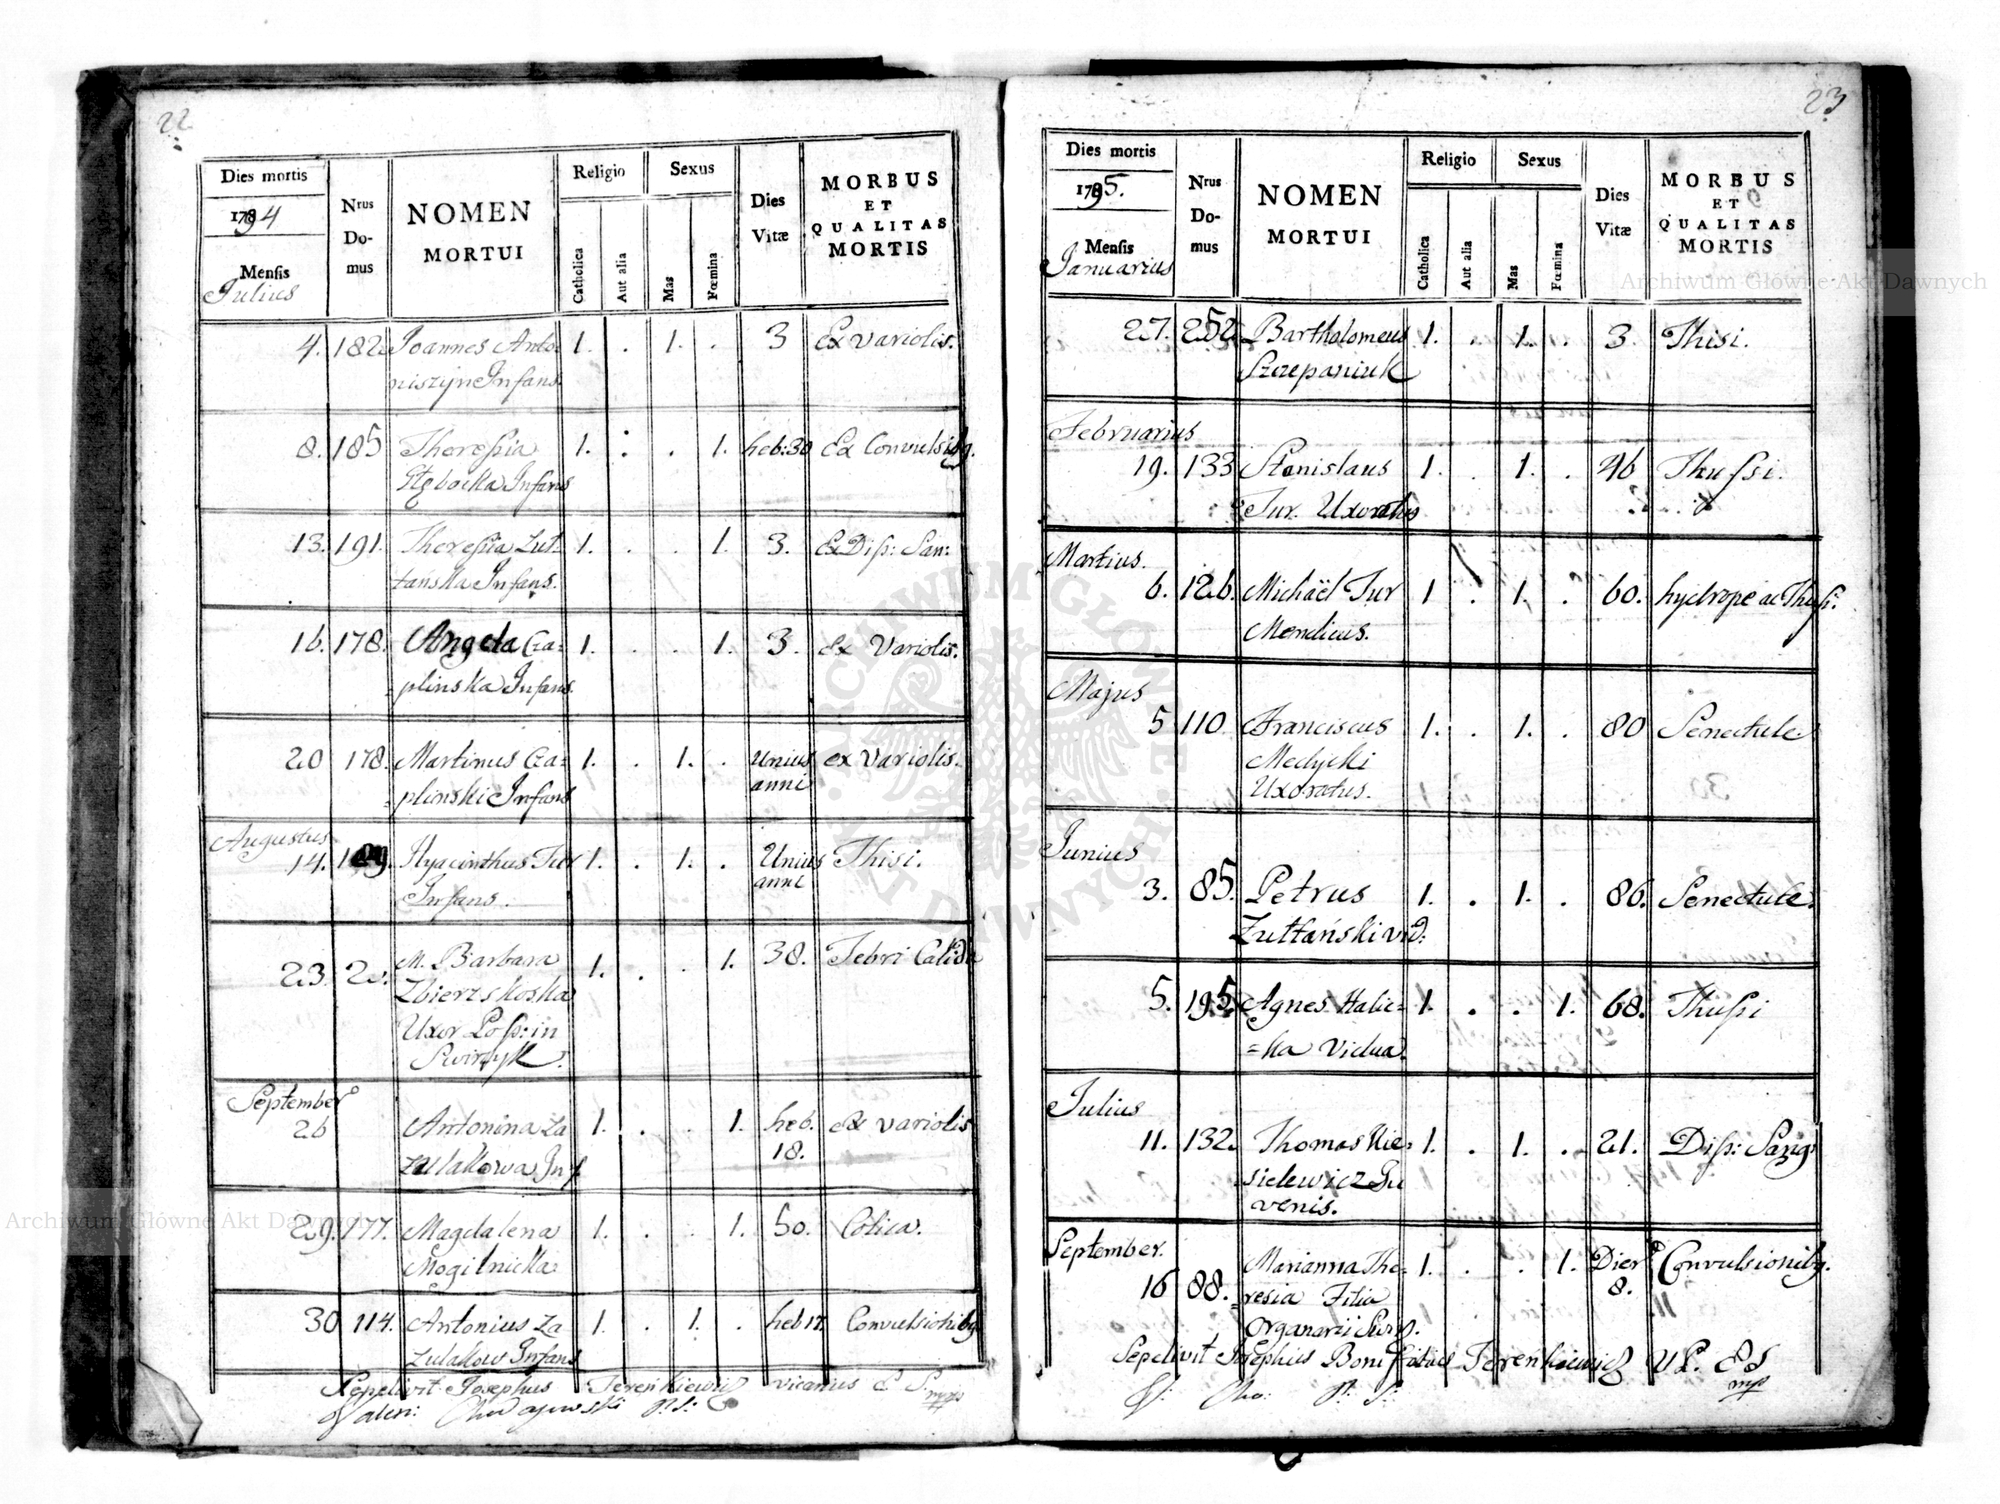 22
Dies mortis
1794
Mensis
Julius
Nrus Domus
NOMEN MORTUI
Religio
Catholica
Aut alia
Sexus
Mas
Fœmina
Dies Vitæ
MORBUS ET QUALITAS MORTIS
4. 182. Joannes Anto- 1. . 1. . 3 Ex variolis.
niszyn Infans.
8. 185 Theresia 1. : . 1. heb: 30 Ex Convulsibg.
Infans
13. 191. Theresia Zuł- 1. . . 1. 3. Ex Diß: San:
tańska Infans.
16. 178. Angela Cza= 1. . . 1. 3. ex Variolis.
=plinska Infans.
20 178. Martinus Cza= 1. . 1. . Unius ex Variolis.
=plinski Infans anni
Augustus
14. Hyacinthus Tur 1. . 1. . Unius Thisi.
Infans. anni
23. 2. M. Barbara 1. . . 1. 38. Febri Calida
Zbierzskoska
Uxor Poss: in
Swirzyk.
September
26 Antonina Za 1. . . 1. heb. ex variolis
zulakowa Inf 18.
29. 177. Magdalena 1. . . 1. 50. Colica.
Mogilnicka
30 114. Antonius Za 1. . 1. . heb 12. Convulsionibg
zulakow Infans
Sepelivit Josephus Tereńkiewicz vicarius
Valen:
23
Dies mortis
1795.
Mensis
Januarius
Nrus Domus
NOMEN MORTUI
Religio
Catholica
Aut alia
Sexus
Mas
Fœmina
Dies Vitæ
MORBUS ET QUALITAS MORTIS
27. 252. Bartholomeus 1. . 1. . 3. Thisi.
Szczepaniuk
Februarius
19. 133 Stanislaus 1. . 1. . 46 Thussi.
Tur. Uxoratus
Martius.
6. 126. Michaël Tur 1 . 1. . 60. hydrope ac Thußi.
Mendicus.
Majus
5 110. Franciscus 1. . 1. . 80 Senectute
Medycki
Uxoratus.
Junius
3. 85. Petrus 1. . 1. . 86. Senectute.
Zułtański vid:
5. 195. Agnes Halic= 1. . . 1. 68. Thußi
=ka Vidua.
Julius
11. 132. Thomas Kie= 1. . 1. . 21. Diß: Sang:
sielewicz Ju
venis.
September.
16 88. Marianna The= 1. . . 1. Dier Convulsionibg.
resia Filia 8.
Organarii Swirz.
Sepelivit Josephus Bonifatius Tereńkiewicz
Archiwum Główne Akt Dawnych
Archiwum Główne Akt Dawnych
ARCHIWUM GŁÓWNE AKT DAWNYCH